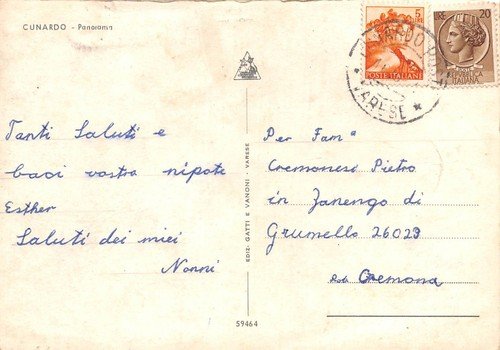 CUNARDO - Panorama
Tanti Saluti e
baci vostra nipote
Esther
Saluti dei miei
Nonni
EDIZ. GATTI E VANONI - VARESE
59464
5
POSTE ITALIANE
LIRE 20
CUNARDO
* VARESE *
Per Famª
Cremonesi Pietro
in Zanengo di
Grumello 26023
Cremona